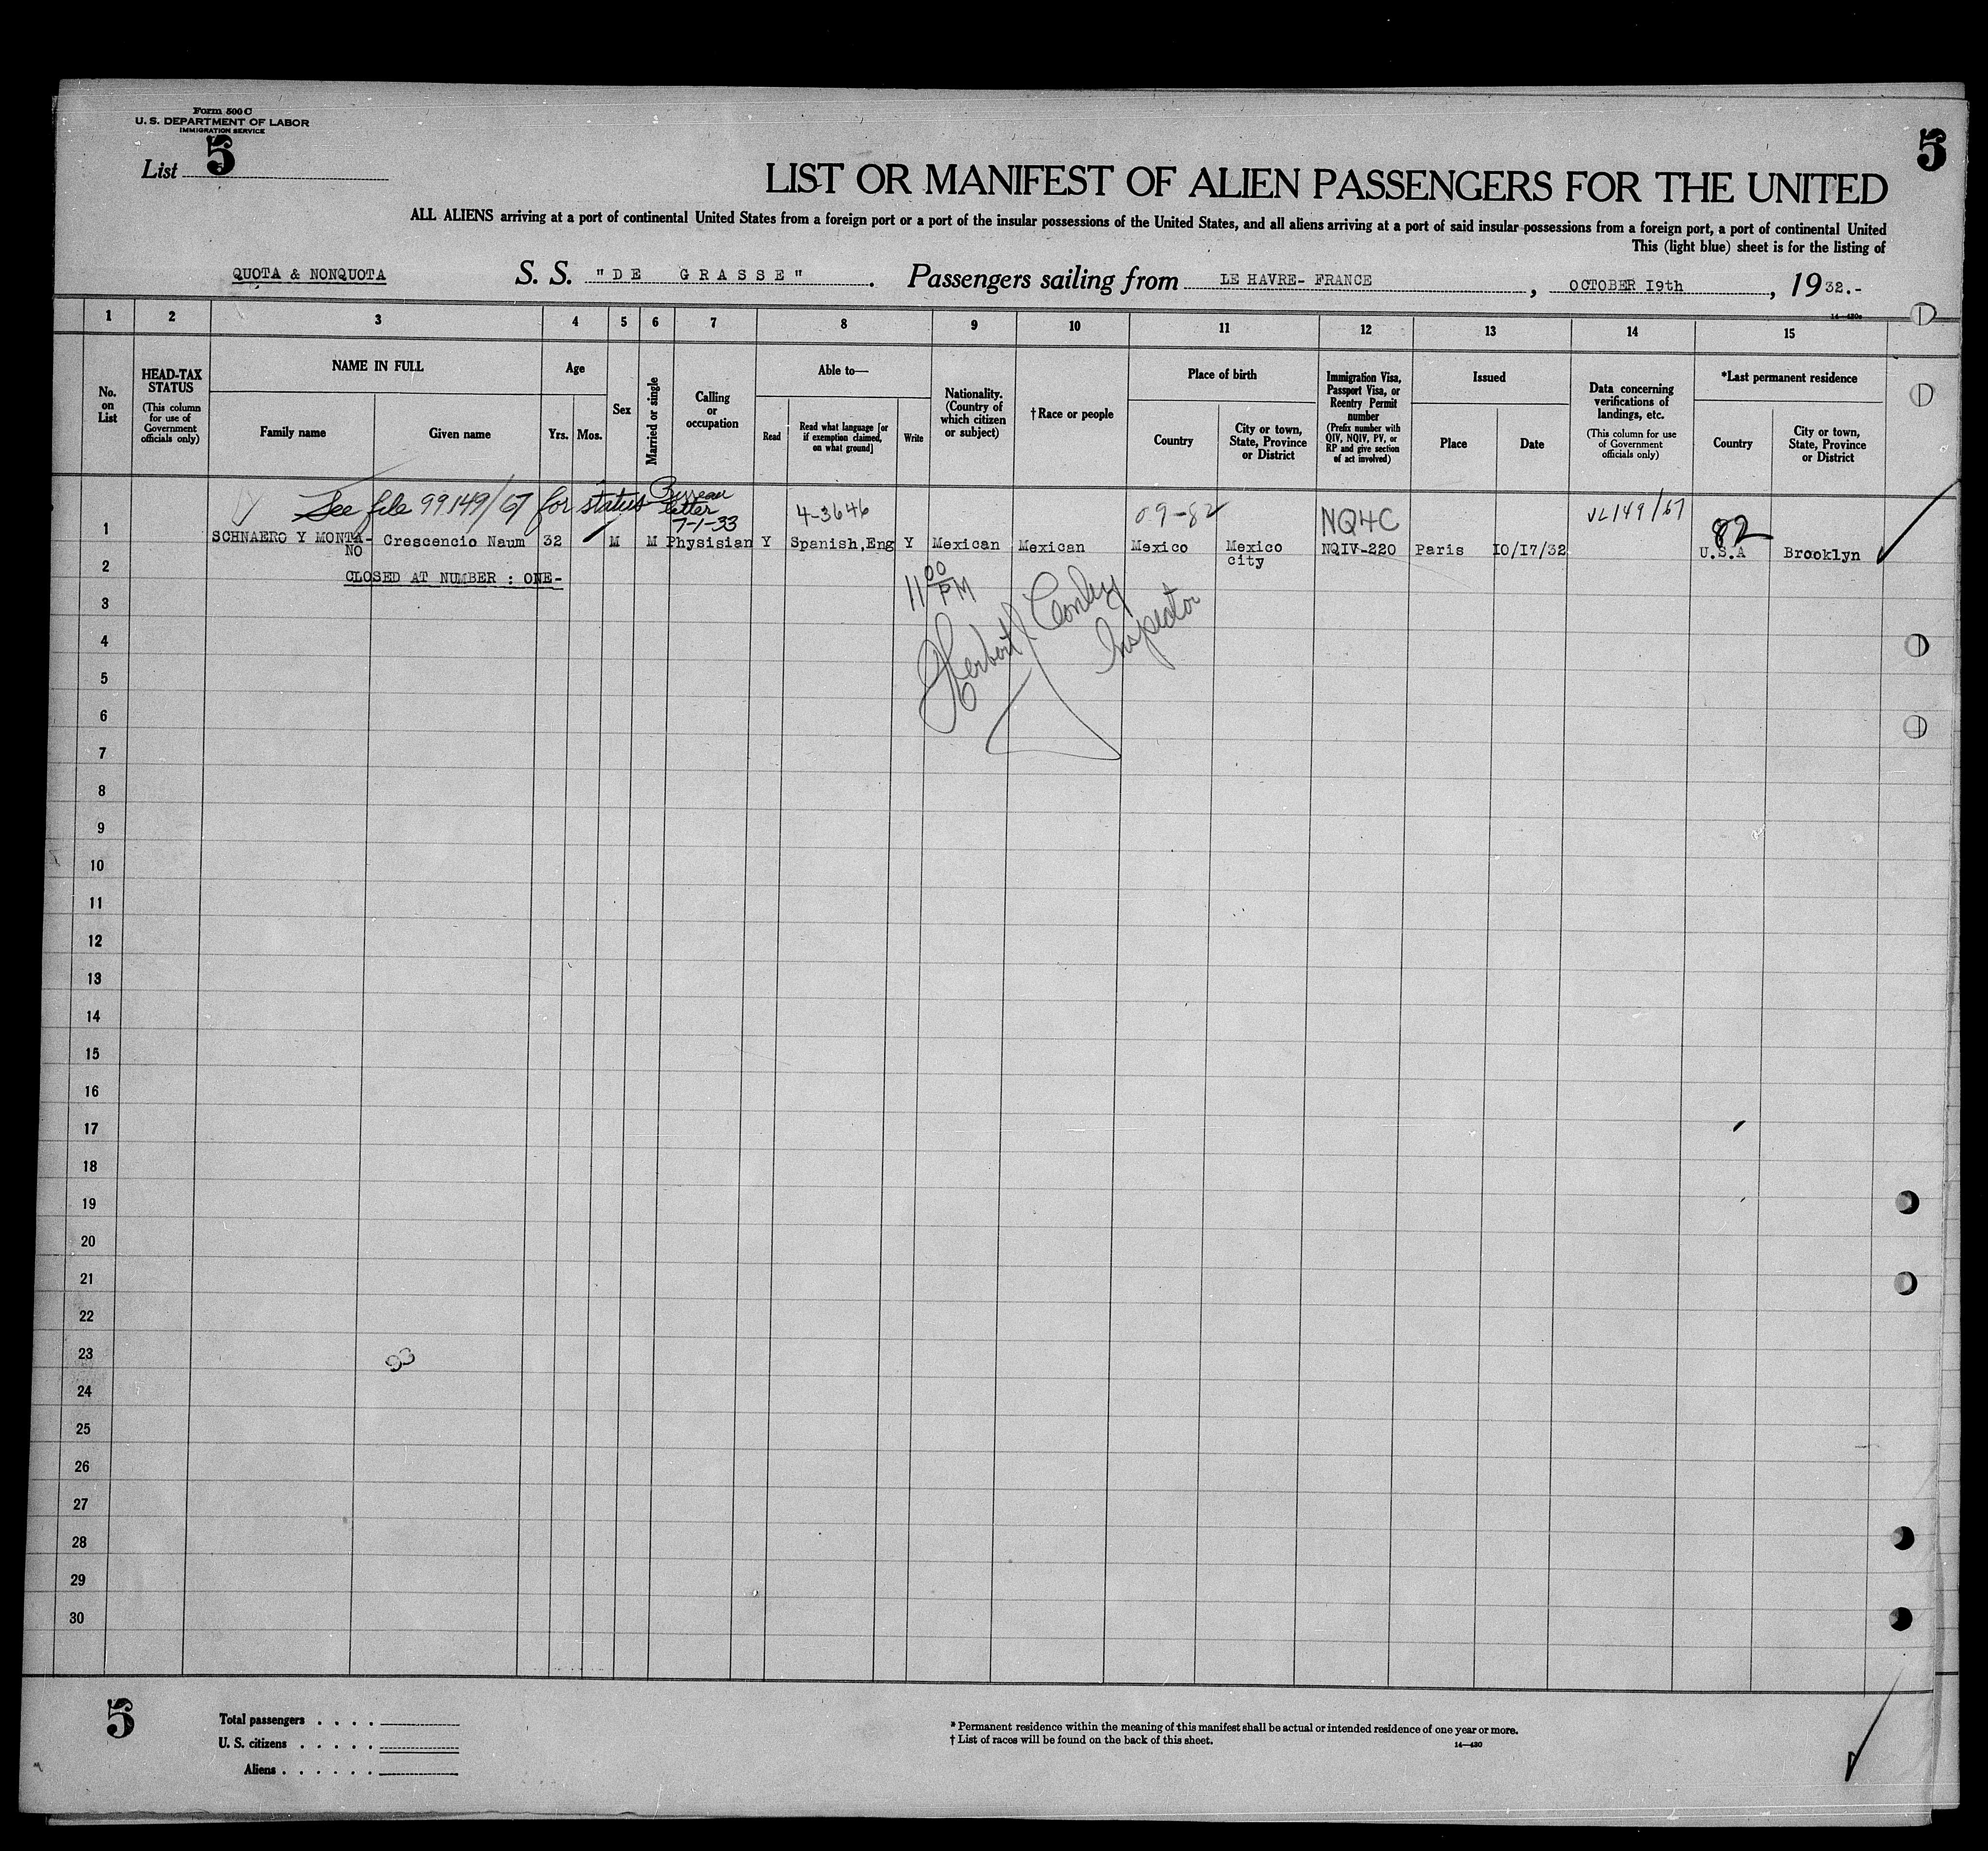 Form 500 C
U. S. DEPARTMENT OF LABOR
IMMIGRATION SERVICE
List 5
5
LIST OR MANIFEST OF ALIEN PASSENGERS FOR THE UNITED
ALL ALIENS arriving at a port of continental United States from a foreign port or a port of the insular possessions of the United States, and all aliens arriving at a port of said insular possessions from a foreign port, a port of continental United
This (light blue) sheet is for the listing of
QUOTA & NONQUOTA S. S. "DE GRASSE" . Passengers sailing from LE HAVRE- FRANCE , OCTOBER I9th , 1932.-
14—430a
1 2 3 4 5 6 7 8 9 10 11 12 13 14 15
No. on List
HEAD-TAX STATUS
(This column for use of Government officials only)
NAME IN FULL
Family name
Given name
Age
Yrs. Mos.
Sex
Married or single
Calling or occupation
Able to—
Read
Read what language [or if exemption claimed, on what ground]
Write
Nationality. (Country of which citizen or subject)
† Race or people
Place of birth
Country
City or town, State, Province or District
Immigration Visa, Passport Visa, or Reentry Permit number
(Prefix number with QIV, NQIV, PV, or RP and give section of act involved)
Issued
Place
Date
Data concerning verifications of landings, etc.
(This column for use of Government officials only)
*Last permanent residence
Country
City or town, State, Province or District
See file 99149/67 for status Bureau letter 7-1-33
4-3646
09-82
NQ4C
VL149/67
82
1 SCHNAERO Y MONTA-NO Crescencio Naum 32 M M Physisian Y Spanish,Eng Y Mexican Mexican Mexico Mexico city NQIV-220 Paris IO/I7/32 U.S.A Brooklyn
2 CLOSED AT NUMBER : ONE-
11 00 PM
Herbert Conley
Inspector
3
4
5
6
7
8
9
10
11
12
13
14
15
16
17
18
19
20
21
22
23
24
25
26
27
28
29
30
5
Total passengers . . . .
U. S. citizens . . . . .
Aliens . . . . . .
* Permanent residence within the meaning of this manifest shall be actual or intended residence of one year or more.
† List of races will be found on the back of this sheet.
14—430